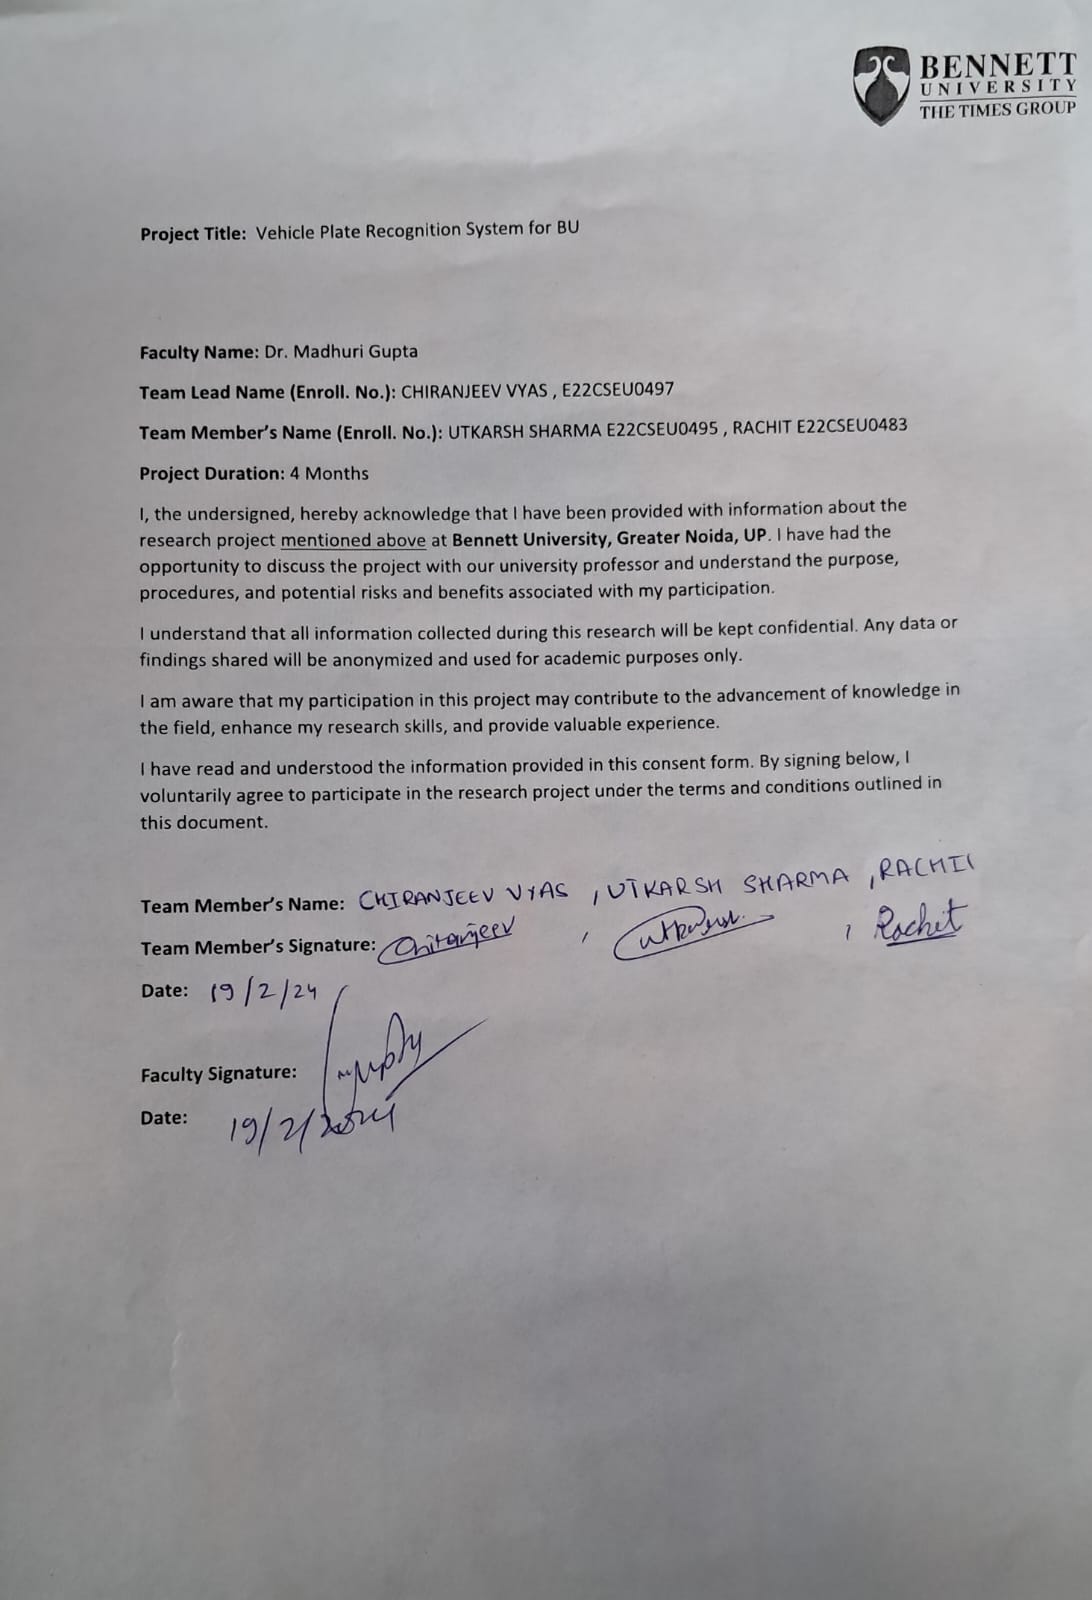 BENNETT
UNIVERSITY
THE TIMES GROUP
Project Title: Vehicle Plate Recognition System for BU
Faculty Name: Dr. Madhuri Gupta
Team Lead Name (Enroll. No.): CHIRANJEEV VYAS , E22CSEU0497
Team Member's Name (Enroll. No.): UTKARSH SHARMA E22CSEU0495 , RACHIT E22CSEU0483
Project Duration: 4 Months
I, the undersigned, hereby acknowledge that I have been provided with information about the
research project mentioned above at Bennett University, Greater Noida, UP. I have had the
opportunity to discuss the project with our university professor and understand the purpose,
procedures, and potential risks and benefits associated with my participation.
I understand that all information collected during this research will be kept confidential. Any data or
findings shared will be anonymized and used for academic purposes only.
I am aware that my participation in this project may contribute to the advancement of knowledge in
the field, enhance my research skills, and provide valuable experience.
I have read and understood the information provided in this consent form. By signing below, I
voluntarily agree to participate in the research project under the terms and conditions outlined in
this document.
Team Member's Name: CHIRANJEEV VYAS , UTKARSH SHARMA , RACHIT
Team Member's Signature: Chiranjeev , Utkarsh , Rachit
Date: 19/2/24
Faculty Signature:
Date: 19/2/2024